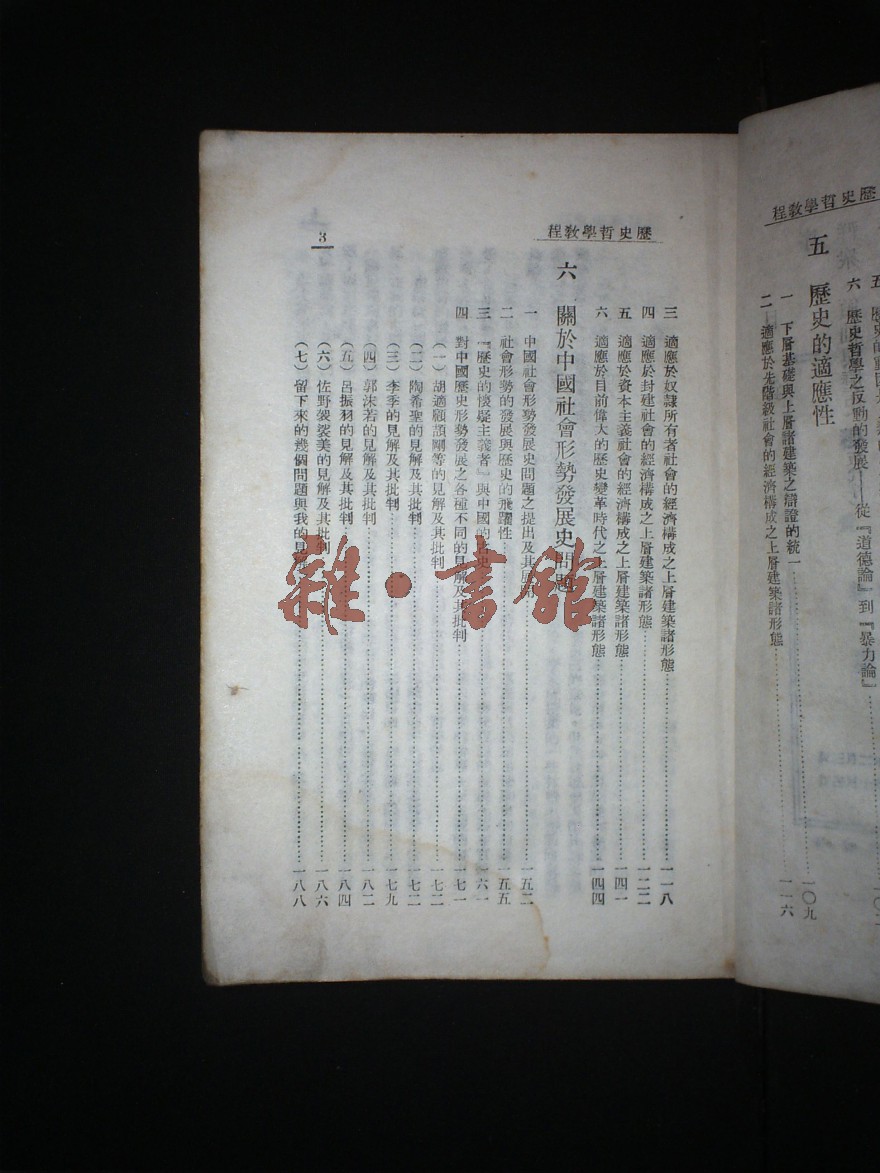 歷史哲學教程
六 歷史哲學之反動的發展——從『道德論』到『暴力論』
五 歷史的適應性
一 下層基礎與上層諸建築之辯證的統一 一〇九
二 適應於先階級社會的經濟構成之上層建築諸形態 一一六
歷史哲學教程
三 適應於奴隸所有者社會的經濟構成之上層建築諸形態 一一八
四 適應於封建社會的經濟構成之上層建築諸形態 一二二
五 適應於資本主義社會的經濟構成之上層建築諸形態 一四一
六 適應於目前偉大的歷史變革時代之上層建築諸形態 一四四
六 關於中國社會形勢發展史問題
一 中國社會形勢發展史問題之提出及其展開 一五二
二 社會形勢的發展與歷史的飛躍性 一五五
三 『歷史的懷疑主義者』與中國的古史 一六一
四 對中國歷史形勢發展之各種不同的見解及其批判 一七一
（一）胡適顧頡剛等的見解及其批判 一七二
（二）陶希聖的見解及其批判 一七二
（三）李季的見解及其批判 一七九
（四）郭沫若的見解及其批判 一八二
（五）呂振羽的見解及其批判 一八四
（六）佐野袈裟美的見解及其批判 一八六
（七）留下來的幾個問題與我的見解 一八八
3
雜·書館